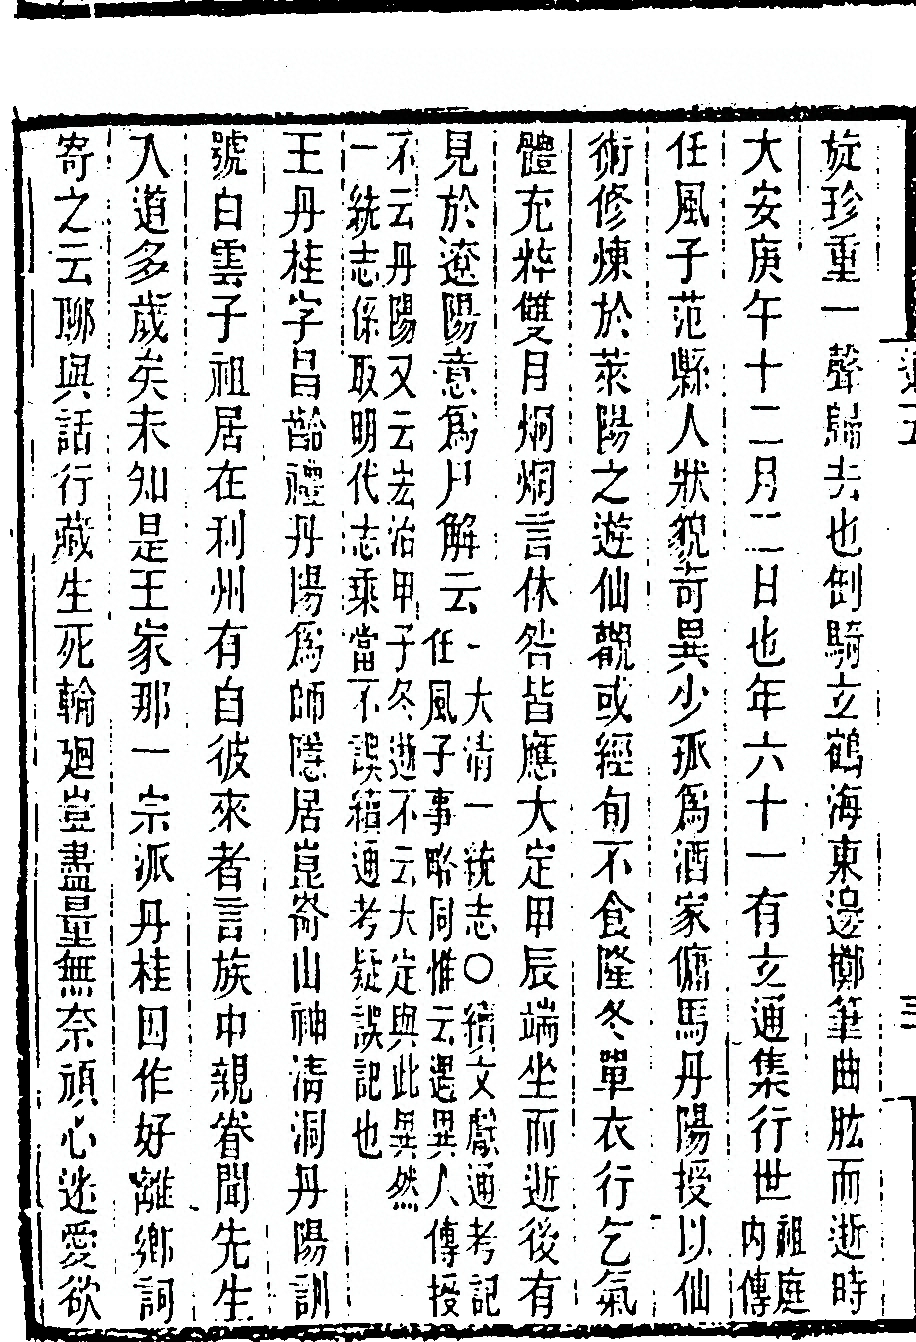 旋珍重一聲歸去也倒騎立鶴海東邊擲筆曲肱而逝時
大安庚午十二月二日也年六十一有立通集行世祖庭
内傳
任風子范縣人狀貌奇異少孤爲酒家傭馬丹陽授以仙
術修煉於萊陽之遊仙觀或經旬不食隆冬單衣行乞氣
體充粹雙目炯炯言休咎皆應大定甲辰端坐而逝後有
見於遼陽意爲尸解云
大清一統志○續文獻通考記
任風子事略同惟云遇異人傳授
不云丹陽又云宏治甲子冬逝不云大定與此異然
一統志係取明代志乘當不誤續通考疑誤記也
王丹桂字昌齡禮丹陽爲師隱居崑嵛山神清洞丹陽訓
號白雲子祖居在利州有自彼來者言族中親眷聞先生
入道多歲矣未知是王家那一宗派丹桂因作好離鄉詞
寄之云聊與話行藏生死輪廻豈盡量無奈頑心迷愛欲